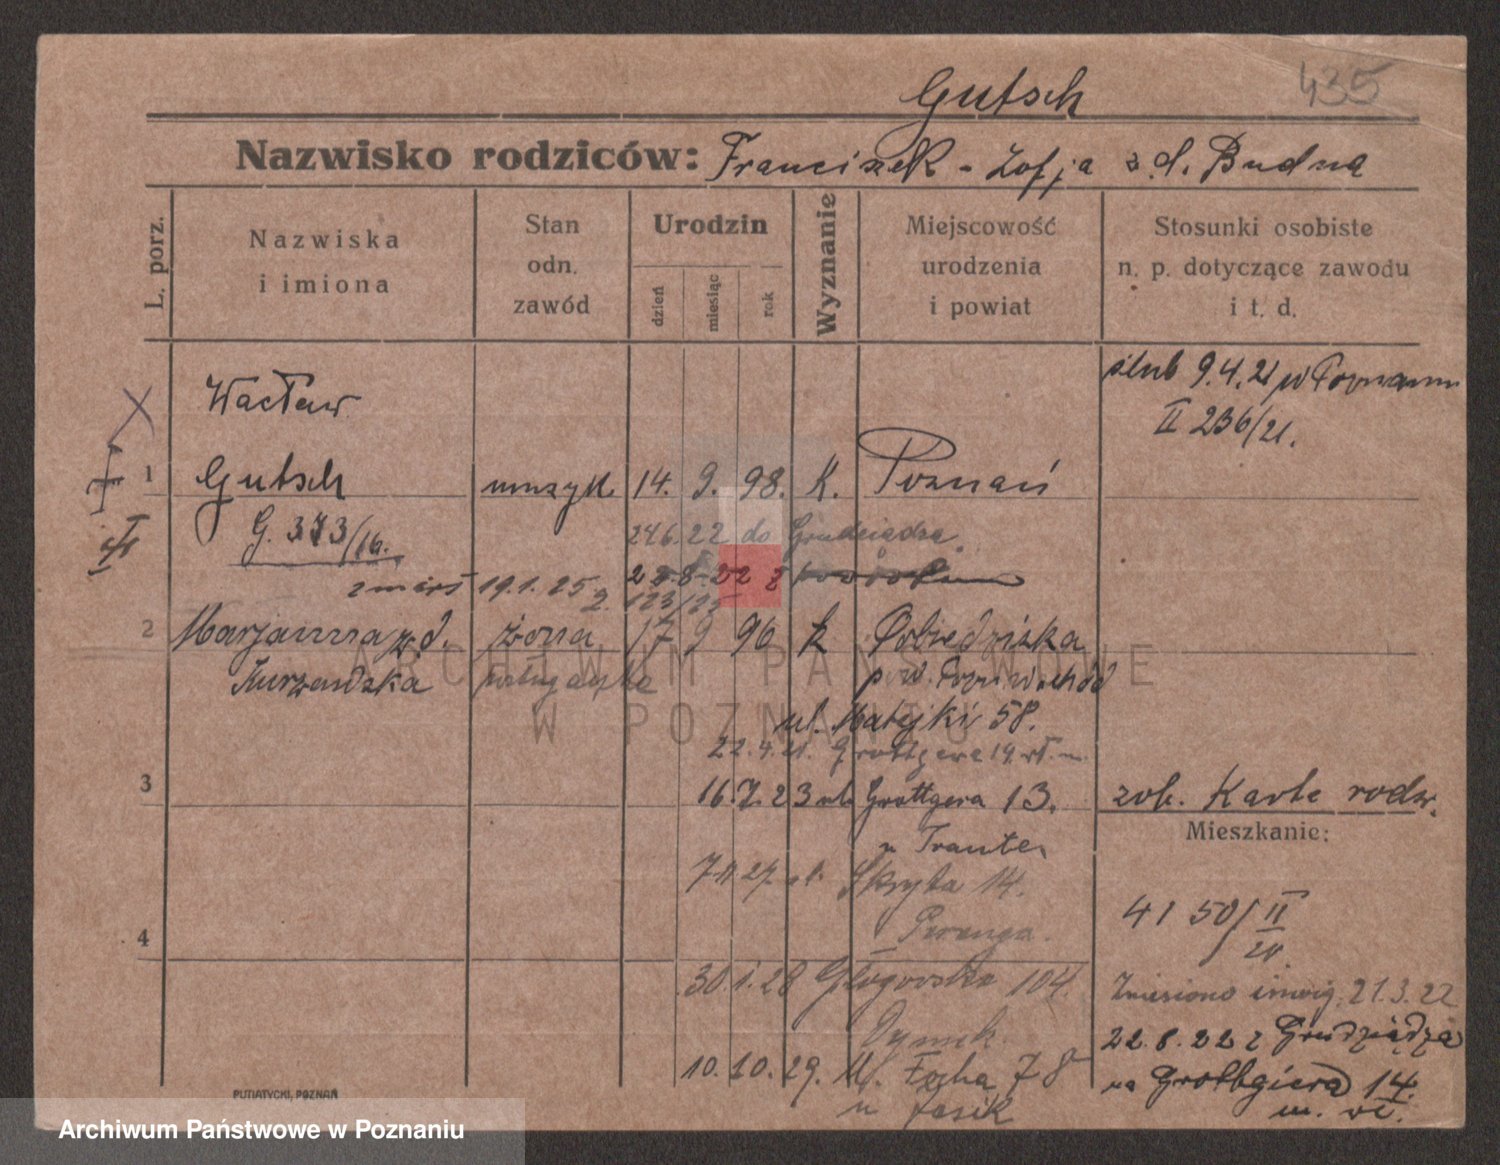 435
Gutsch
Nazwisko rodziców: Franciszek - Zofja z d. Budna
L. porz.
Nazwiska i imiona
Stan odn. zawód
Urodzin
dzień
miesiąc
rok
Wyznanie
Miejscowość urodzenia i powiat
Stosunki osobiste n. p. dotyczące zawodu i t. d.
ślub 9.4.21 w Poznaniu
II 236/21.
Wacław
1 Gutsch muzyk 14. 9. 98. K. Poznań
G. 373/16.
24.6.22 do Grudziądza
22.8.22 z
zmarł 19.1.25 r. 123/25
2 Marjanna z d. żona 17 9 96 k Pobiedziska
Kurzawska pow. Pozn. wschód
ul. Matejki 58.
22.4.21. Grottgera 14 m.
3 16.7.23 ul. Grottgera 13. zob. Karte rodz.
Mieszkanie:
u Trante
7.11.27. ul. Skryta 14.
41 50/II 20
4
30.1.28 Głogowska 104.
Zniesiono inwig. 21.3.22
22.8.22 z Grudziądza
10.10.29. M. Focha 78
na Grottgiera 14
u Jasik
PUTIATYCKI, POZNAŃ
ARCHIWUM PAŃSTWOWE
W POZNANIU
Archiwum Państwowe w Poznaniu